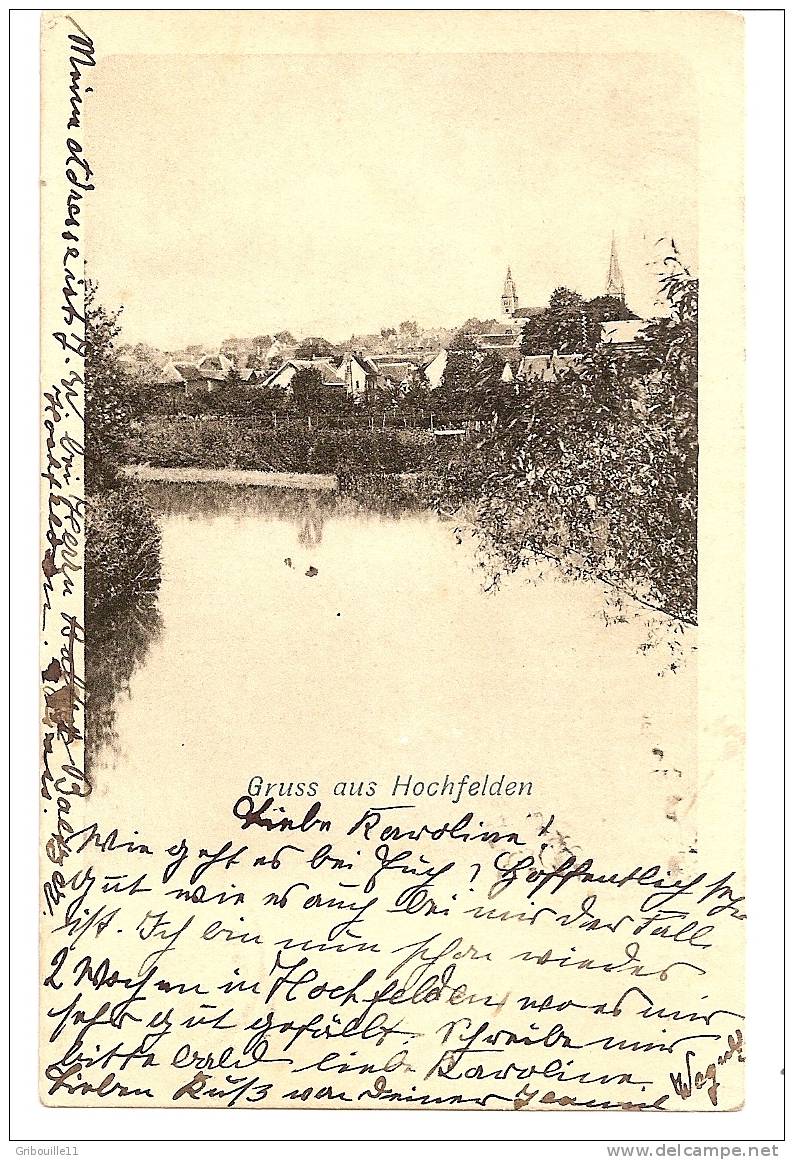 Gruss aus Hochfelden
Liebe Karoline!
Wie geht es bei Euch? Hoffentlich sehr
gut wie es auch bei mir der Fall
ist. Ich bin nun schon wieder
2 Wochen in Hochfelden, wo es mir
sehr gut gefällt. Schreibe mir
bitte bald liebe Karoline.
Lieben Kuß von Deiner Jeanne
Meine Adresse ist J. W bei Herrn Baltzer
Hochfelden.
Gribouille11
www.delcampe.net